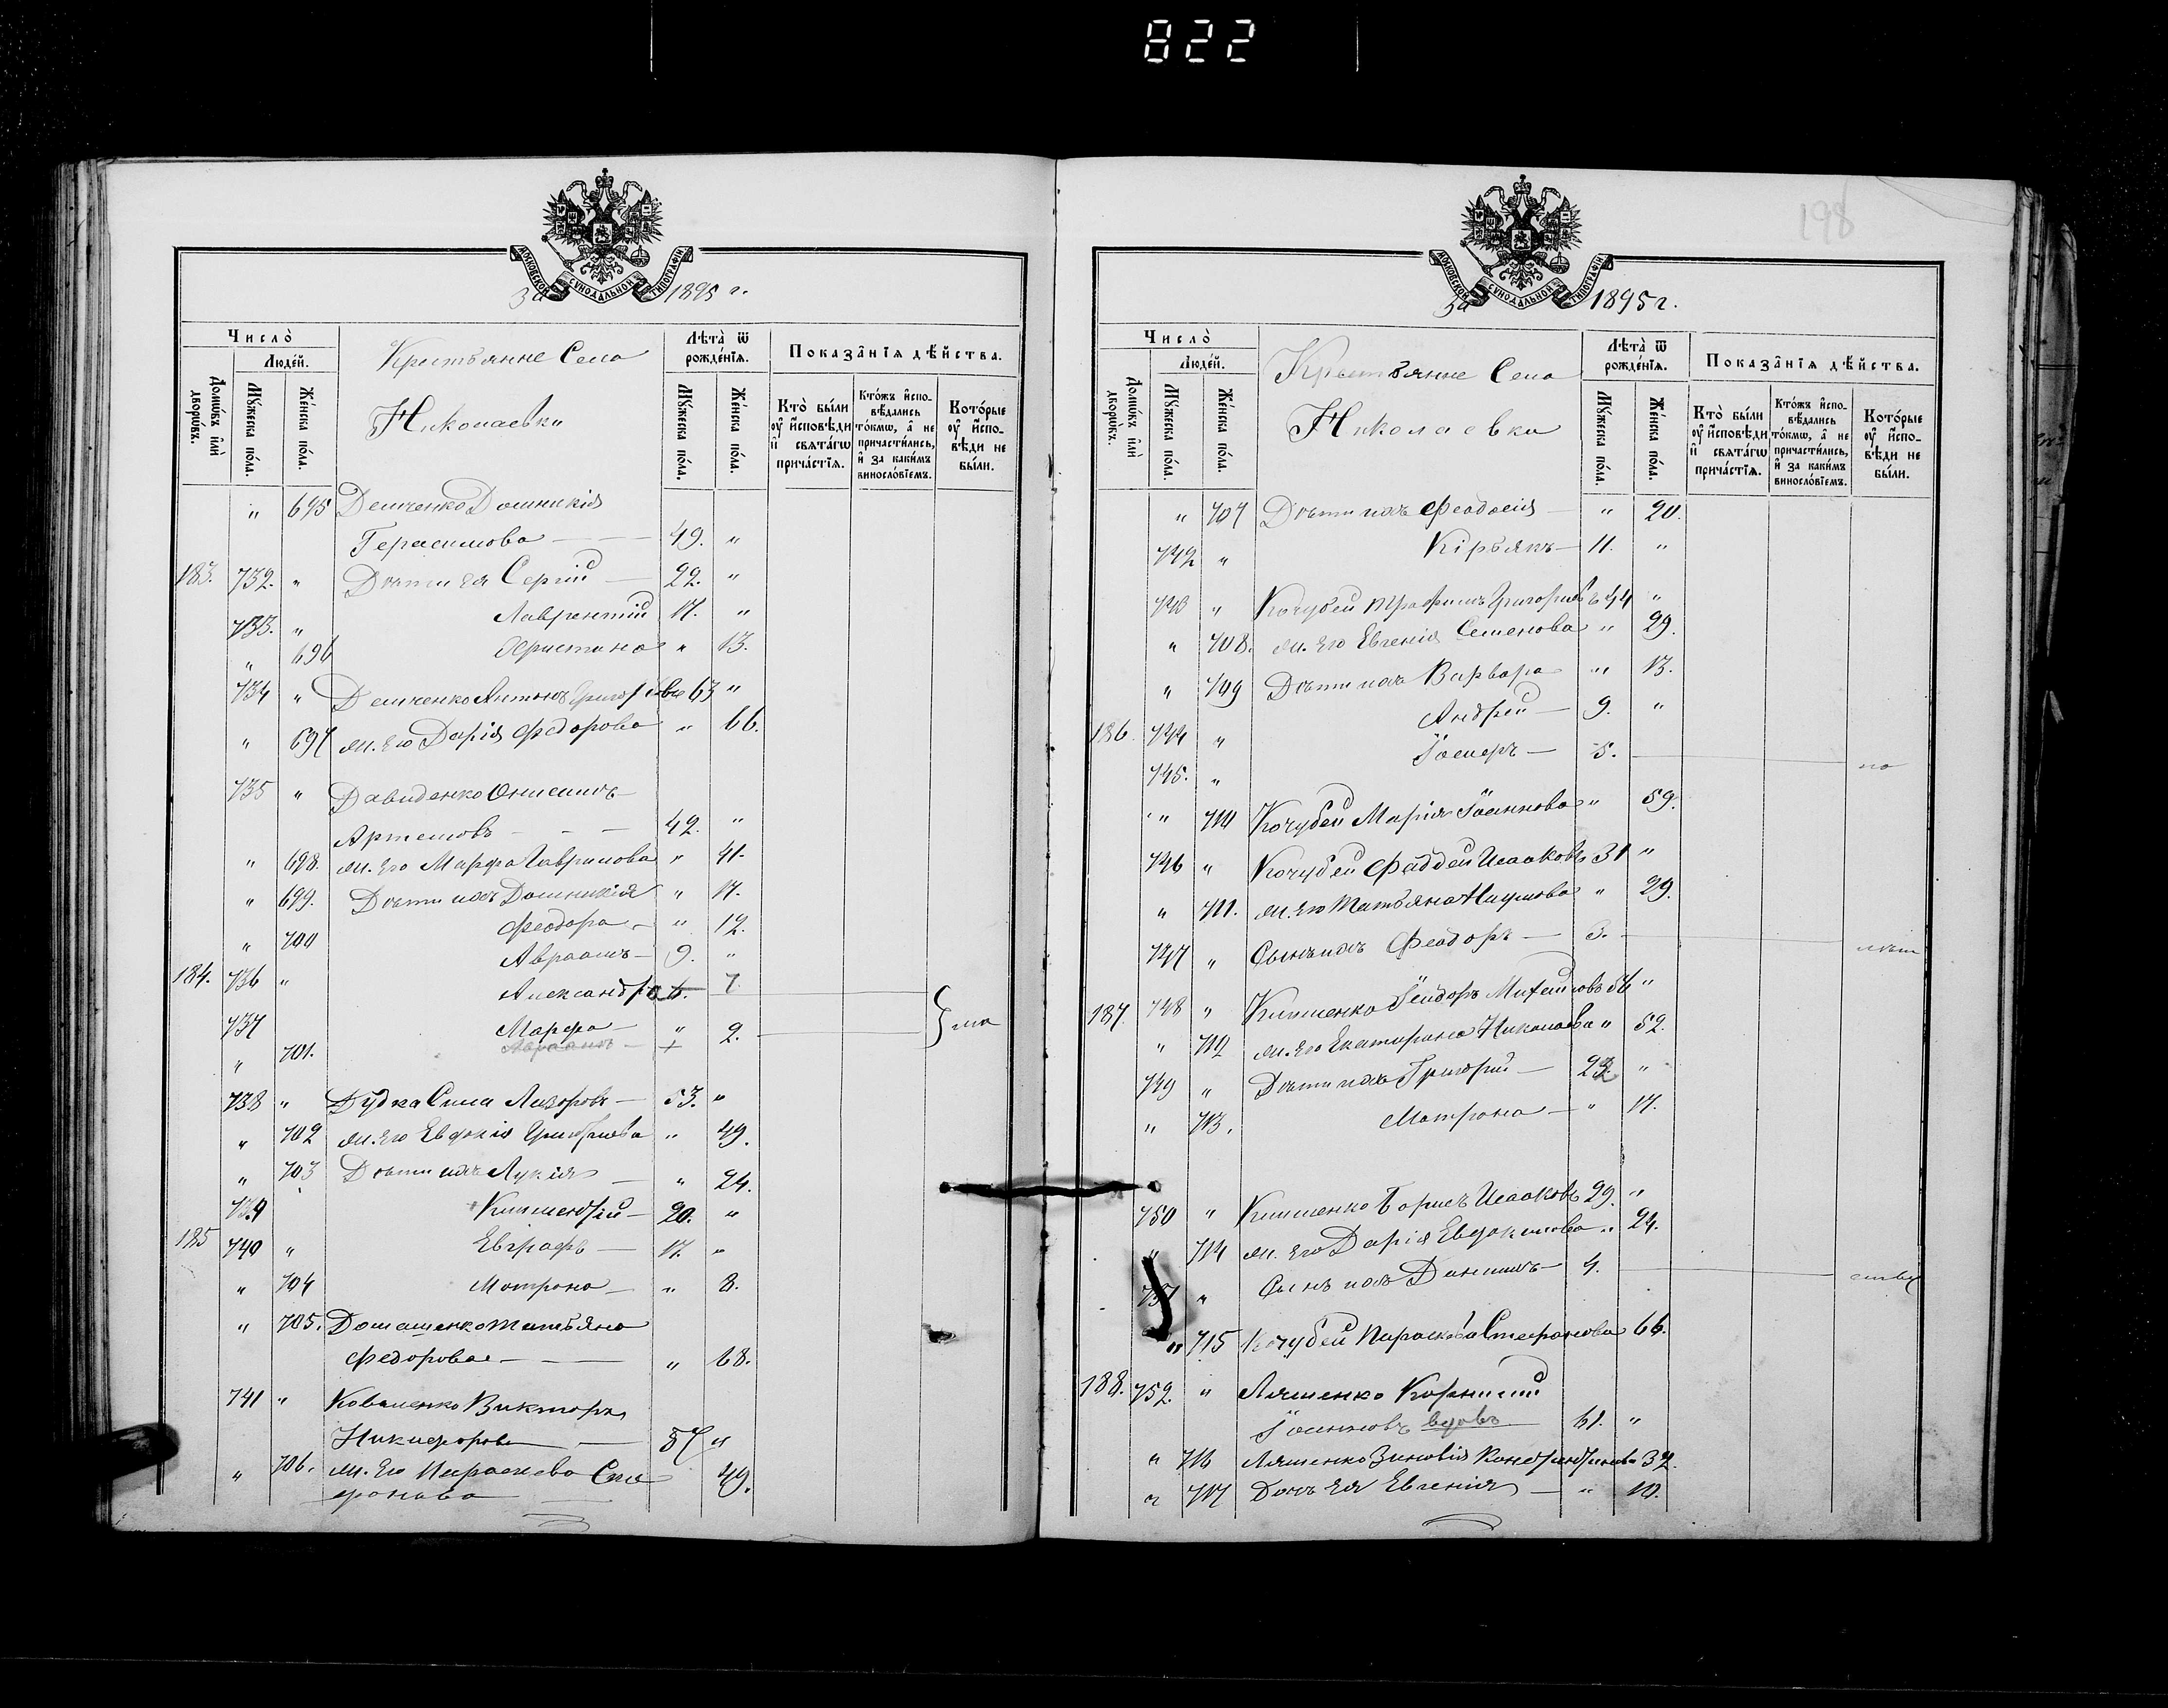 822
МОСКОВСКОЙ СѴНОДАЛЬНОЙ ТИПОГРАФІИ
За 1895 г.
Число̀
Людей.
Домѡвъ и҆лѝ дворѡвъ.
Мꙋжеска по́ла.
Же́нска по́ла.
Крестьяне Села
Николаевки
Лѣта̀ ѿ рожде́нїѧ.
Мꙋжеска по́ла.
Же́нска по́ла.
Показа̑нїѧ дѣ́йства.
Кто̀ бы́ли оу҆ и҆сповѣ́ди и҆ свѧта́гѡ прича́стїѧ.
Кто́жъ и҆спо-вѣ́дались то́кмѡ, а҆ не причасти́лись, и҆ за каки́мъ винословїемъ.
Кото́рые оу҆ и҆спо-вѣ́ди не бы́ли.
" 695 Демченко Домникія
Герасимова — 49. "
183. 732. " Дѣти ея Сергій — 22. "
733. " Лаврентій 17. "
" 696 Христина " 13.
734 " Демченко Антонъ Григорьевъ 63 "
" 697 ж. его Дарія Федорова " 66.
735 " Давиденко Онисимъ
Артемовъ — 42. "
" 698. ж. его Марфа Гаврилова " 41.
" 699. Дѣти ихъ Домникія " 17.
" 700 Феодора — " 12.
184. 736 " Авраамъ — 9. "
737 Александра 6. 7
" 701. Марфа — " 2. — } ма
Авраамъ — +
738 " Дудка Сила Лазаровъ — 53. "
" 702 ж. его Евдокія Григорьева " 49.
" 703 Дѣти ихъ Лукія — " 24.
739 Климентій — 20. "
185 740 " Евграфъ — 17. "
" 704 Матрона — " 8.
" 705. Домашенко Татьяна
Федорова — " 68.
741 " Коваленко Викторъ
Никифоровъ — 57 "
" 706. ж. его Параскева Сте
фанова 49.
198
МОСКОВСКОЙ СѴНОДАЛЬНОЙ ТИПОГРАФІИ
За 1895 г.
Число̀
Людей.
Домѡвъ и҆лѝ дворѡвъ.
Мꙋжеска по́ла.
Же́нска по́ла.
Крестьяне Села
Николаевки
Лѣта̀ ѿ рожде́нїѧ.
Мꙋжеска по́ла.
Же́нска по́ла.
Показа̑нїѧ дѣ́йства.
Кто̀ бы́ли оу҆ и҆сповѣ́ди и҆ свѧта́гѡ прича́стїѧ.
Кто́жъ и҆спо-вѣ́дались то́кмѡ, а҆ не причасти́лись, и҆ за каки́мъ винословїемъ.
Кото́рые оу҆ и҆спо-вѣ́ди не бы́ли.
" 707 Дѣти ихъ Феодосія — " 20.
742 " Кірьякъ — 11. "
743 " Кочубей Трофимъ Григорьевъ 44 "
" 708. ж. его Евгенія Семенова " 29.
" 709 Дѣти ихъ Варвара " 13.
186. 744 " Андрей — 9. "
745. " — 5. — ло
" 710 Кочубей Марія Іоаннова " 59.
746 " Кочубей Фаддей Исааковъ 31 "
" 711. ж. его Татьяна Наумова " 29.
747 " Сынъ ихъ Феодоръ — 3. — лѣт
187. 748 " Клименко Ісидоръ Михайловъ 54 "
" 712 ж. его Екатерина Николаева " 52.
749 " Дѣти ихъ Григорій — 23. "
" 713. Матрона — " 17.
750 " Клименко Борисъ Исааковъ 29. "
" 714 ж. его Дарія Евдокимова " 24.
751 " Сынъ ихъ Даніилъ — 4. — ству
" 715 Кочубей Параскева Стефанова 66.
188. 752. " Ляшенко Корнилій
Іоанновъ вдовъ 61. "
" 716 Ляшенко Зиновія 32.
" 717 Дочь ея Евгенія — " 10.